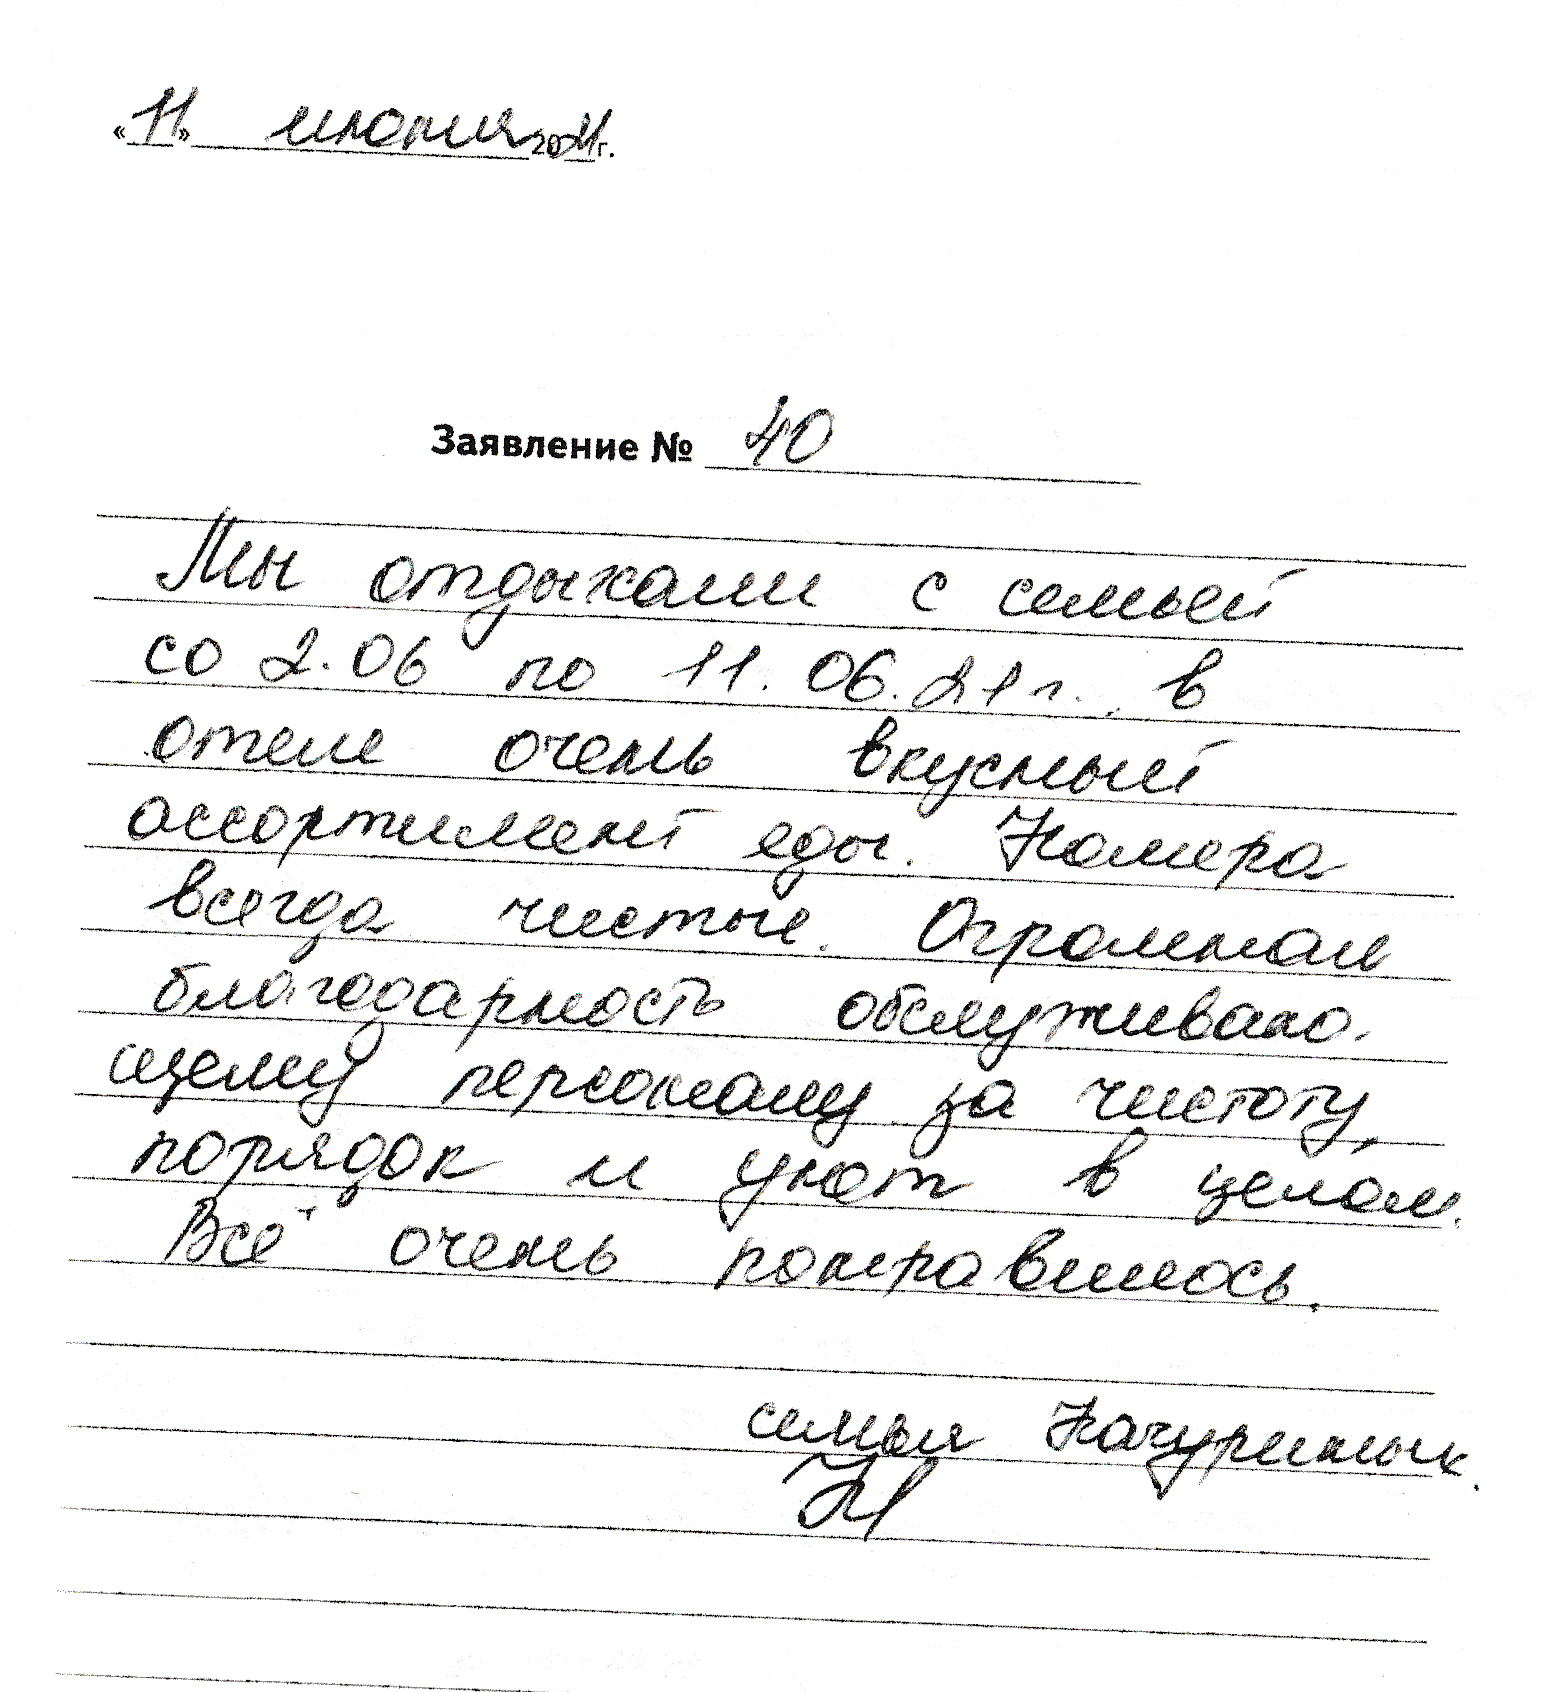 «11» июня 2021г.
Заявление № 40
Мы отдыхали с семьей
со 2.06 по 11.06.21г., в
отеле очень вкусный
ассортимент еды. Номера
всегда чистые. Огромная
благодарность обслуживаю-
щему персоналу за чистоту,
порядок и уют в целом.
Всё очень понравилось.
семья Качуриных.